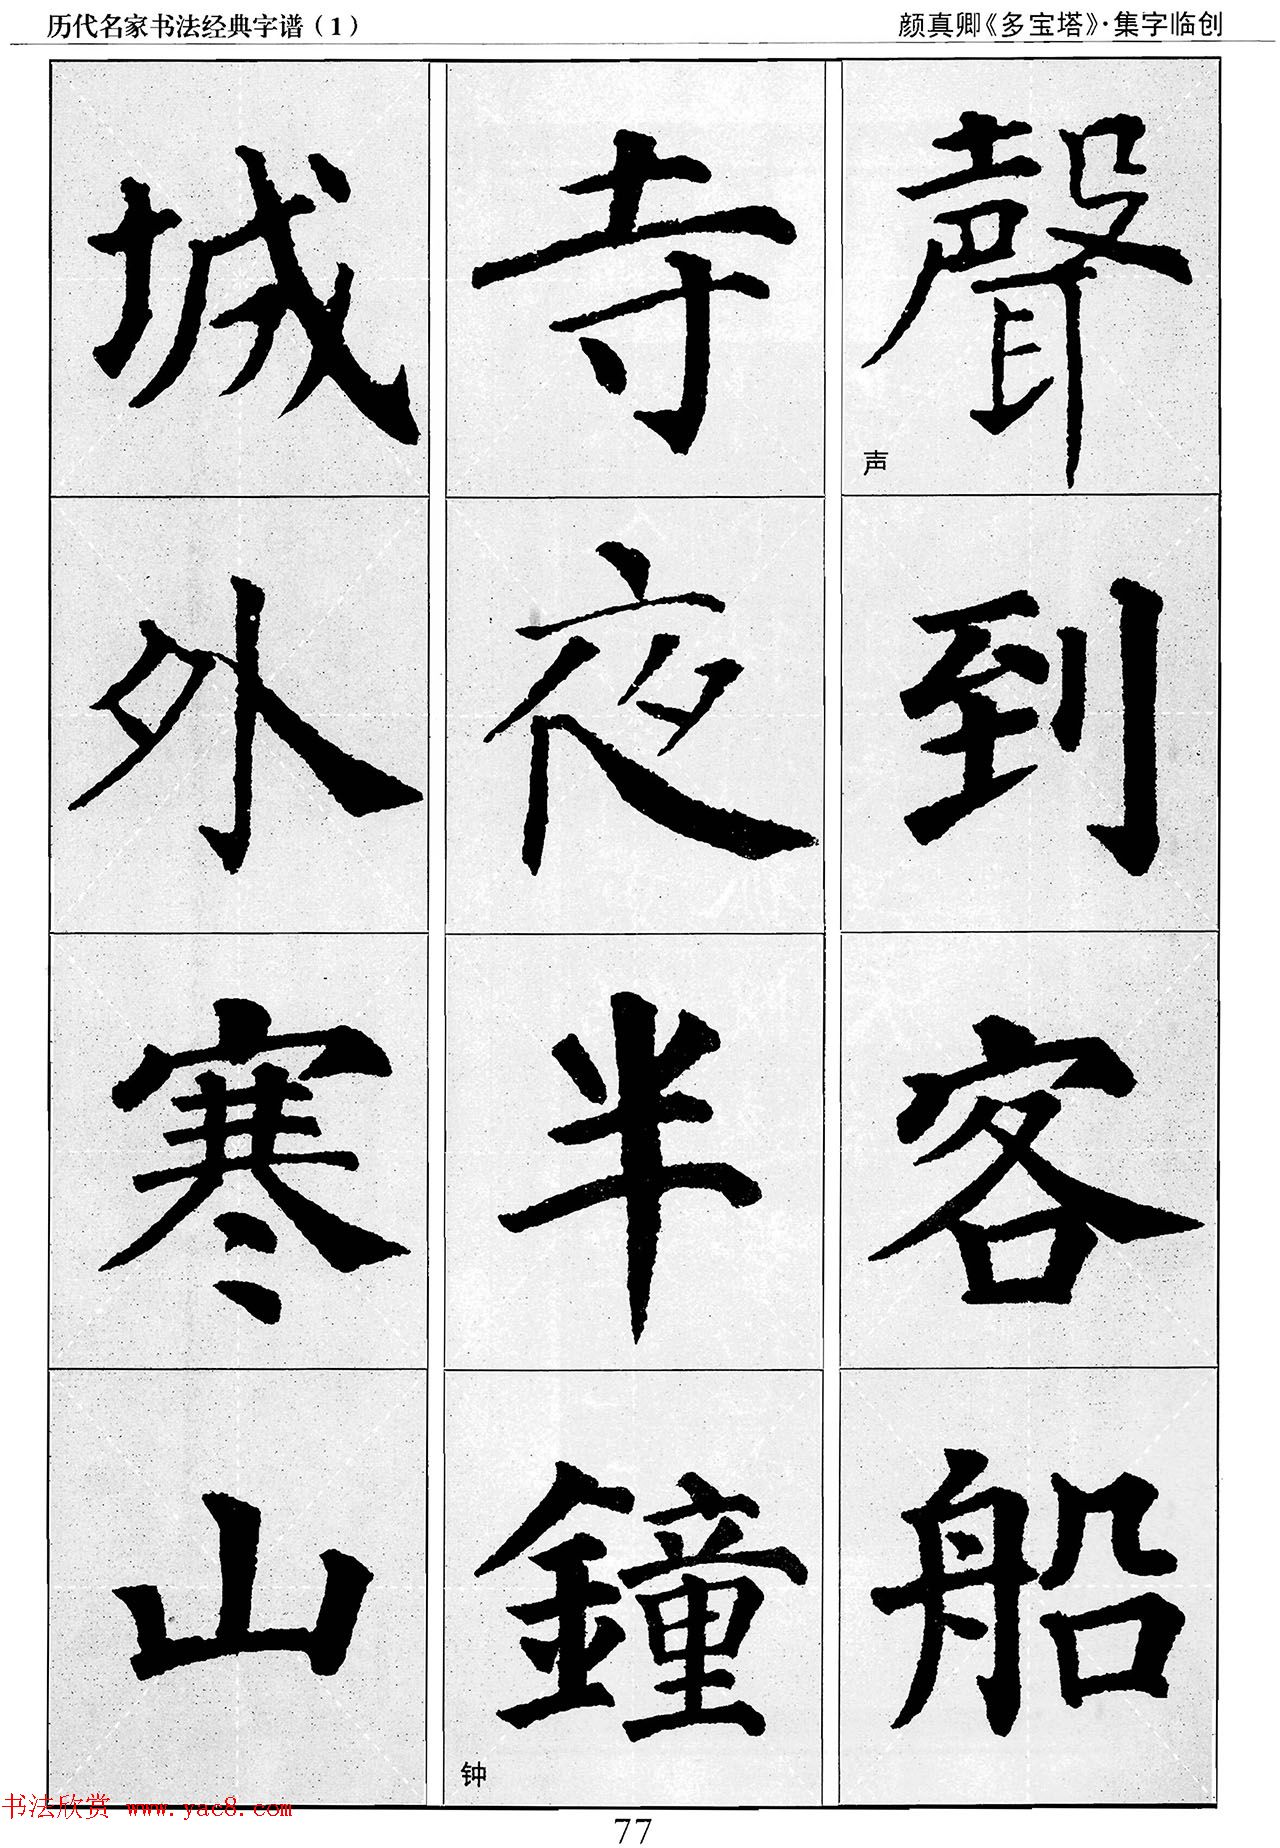 历代名家书法经典字谱（1）
颜真卿《多宝塔》·集字临创
城外寒山
寺夜半鐘
钟
聲到客船
声
书法欣赏 www.yac8.com
77